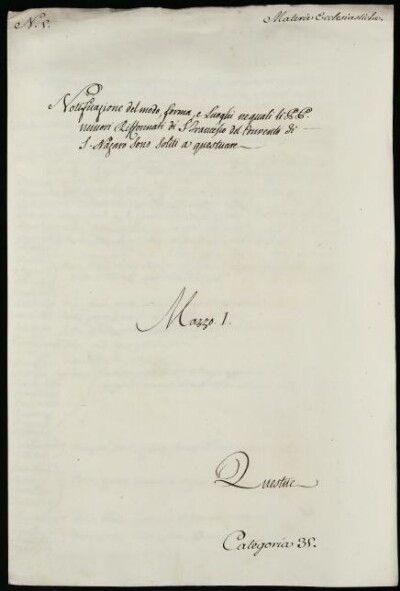 N. V.
Materie Ecclesiastiche
Notificazione del modo, forma, e Luoghi ne quali li P.P.
minori Riformati di S. Francesco del Convento di
S. Nazaro sono soliti a questuare
Mazzo I.
Questue
Categoria 35.